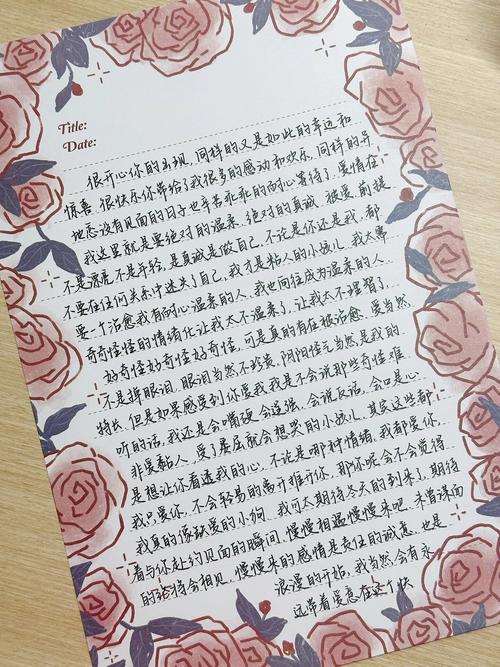 Title:
Date:
很开心你的出现,同样的又是如此的幸运和
惊喜.很快乐你带给了我很多的感动和欢乐,同样的异
地恋没有见面的日子也辛苦乖乖的耐心等待了.爱情在
我这里就是要绝对的温柔.绝对的真诚.被爱前提
不是漂亮不是年轻,是真诚是做自己,不论是你还是我,都
不要在任何关系中迷失了自己,我才是粘人的小孩儿,我太需
要一个治愈我有耐心温柔的人,我也向往成为温柔的人
奇奇怪怪的情绪化让我太不温柔了,让我太不理智了,
好奇怪好奇怪好奇怪,可是真的有在被治愈.爱当然
不是掉眼泪,眼泪当然不珍贵,阴阳怪气当然是我的
特长,但是如果感受到你爱我我是不会说那些奇怪难
听的话,我还是会嘴硬会逞强.会说反话,会口是心
非爱黏人,受了委屈就会想哭的小孩儿,其实这些都
是想让你看透我的心,不论是哪种情绪,我都爱你
我只要你,不会轻易的离开推开你,那你呢会不会觉得
我真的像敏感的小狗.我可太期待冬天的到来了,期待
着与你赴约见面的瞬间,慢慢相遇慢慢来吧.未曾谋面
的终将会相见,慢慢来的感情是责任的诚意,也是
浪漫的开始,我当然会有永
远带着爱意在这个秋